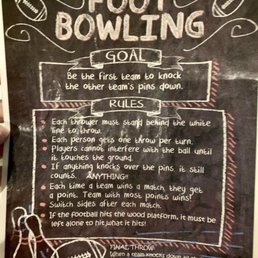 FOOT
BOWLING
GOAL
Be the first team to knock
the other team's pins down.
RULES
Each thrower must stand behind the white
line to throw.
Each person gets one throw per turn.
Players cannot interfere with the ball until
it touches the ground.
If anything knocks over the pins it still
counts. ANYTHING!
Each time a team wins a match, they get
a point. Team with most points wins!
Switch sides after each match.
If the football hits the wood platform, it must be
left alone to hit what it hits!
FINAL THROW
When a team knocks down